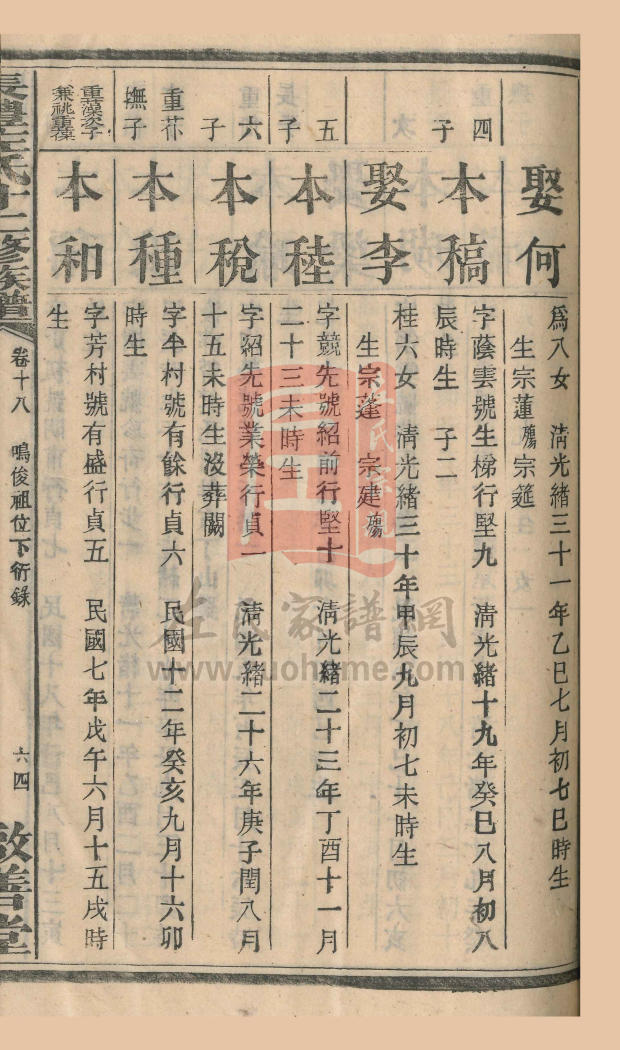 娶何
爲八女 清光緒三十一年乙巳七月初七巳時生
生宗蓮殤宗筵
重四
子
本稿
字蔭雲號生梯行堅九 清光緒十九年癸巳八月初八
辰時生 子二
娶李
桂六女 清光緒三十年甲辰九月初七未時生
生宗蓬 宗建殤
五
長子
本稑
字競先號紹前行堅十 清光緒二十三年丁酉十一月
二十三未時生
重六
子
本稅
字紹先號業榮行貞二 清光緒二十六年庚子閏八月
十五未時生沒葬闕
重芥
撫子
本種
字半村號有餘行貞六 民國十二年癸亥九月十六卯
時生
重藻次子
兼祧重
本和
字芳村號有盛行貞五 民國七年戊午六月十五戌時
生
長澧左氏十二修族譜
卷十八 鳴俊祖位下衍錄
六四
敦善堂
左氏家譜網
www.zuohome.com